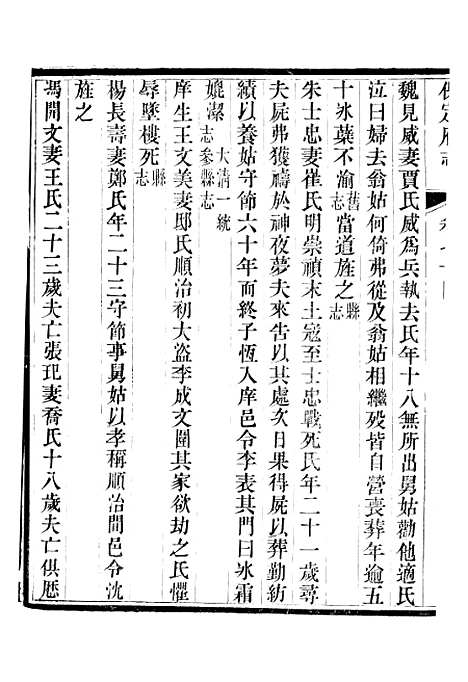 保定府志
卷七十
魏見威妻賈氏威爲兵執去氏年十八無所出舅姑勸他適氏
泣曰婦去翁姑何倚弗從及翁姑相繼歿皆自營喪葬年逾五
十氷蘖不渝舊志當道旌之縣志
朱士忠妻崔氏明崇禎末土寇至士忠戰死氏年二十一歲尋
夫屍弗獲禱於神夜夢夫來告以其處次日果得屍以葬勤紡
績以養姑守節六十年而終子恆入庠邑令李表其門曰氷霜
媲潔大淸一統志參縣志
庠生王文美妻邸氏順治初大盜李成文圍其家欲劫之氏懼
辱墜樓死縣志
楊長壽妻鄭氏年二十三守節事舅姑以孝稱順治間邑令沈
旌之
馮開文妻王氏二十三歲夫亡張玘妻喬氏十八歲夫亡俱歷